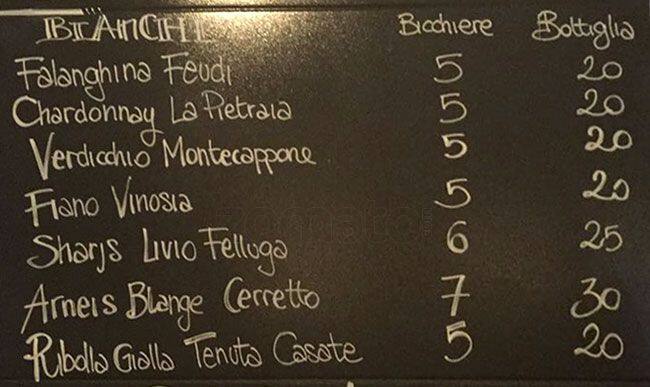 BIANCHI Bicchiere Bottiglia
Falanghina Feudi 5 20
Chardonnay La Pietraia 5 20
Verdicchio Montecappone 5 20
Fiano Vinosia 5 20
Sharjs Livio Felluga 6 25
Arneis Blange Cerretto 7 30
Ribolla Gialla Tenuta Casate 5 20